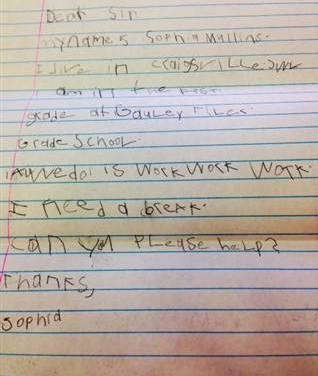 Dear Sir
my name s Sophia Mullins.
I live in craigsville.wv
am in the
grade at Gauley River
Grade School.
All we do is work work work.
I need a break.
can you please help?
Thanks,
Sophia